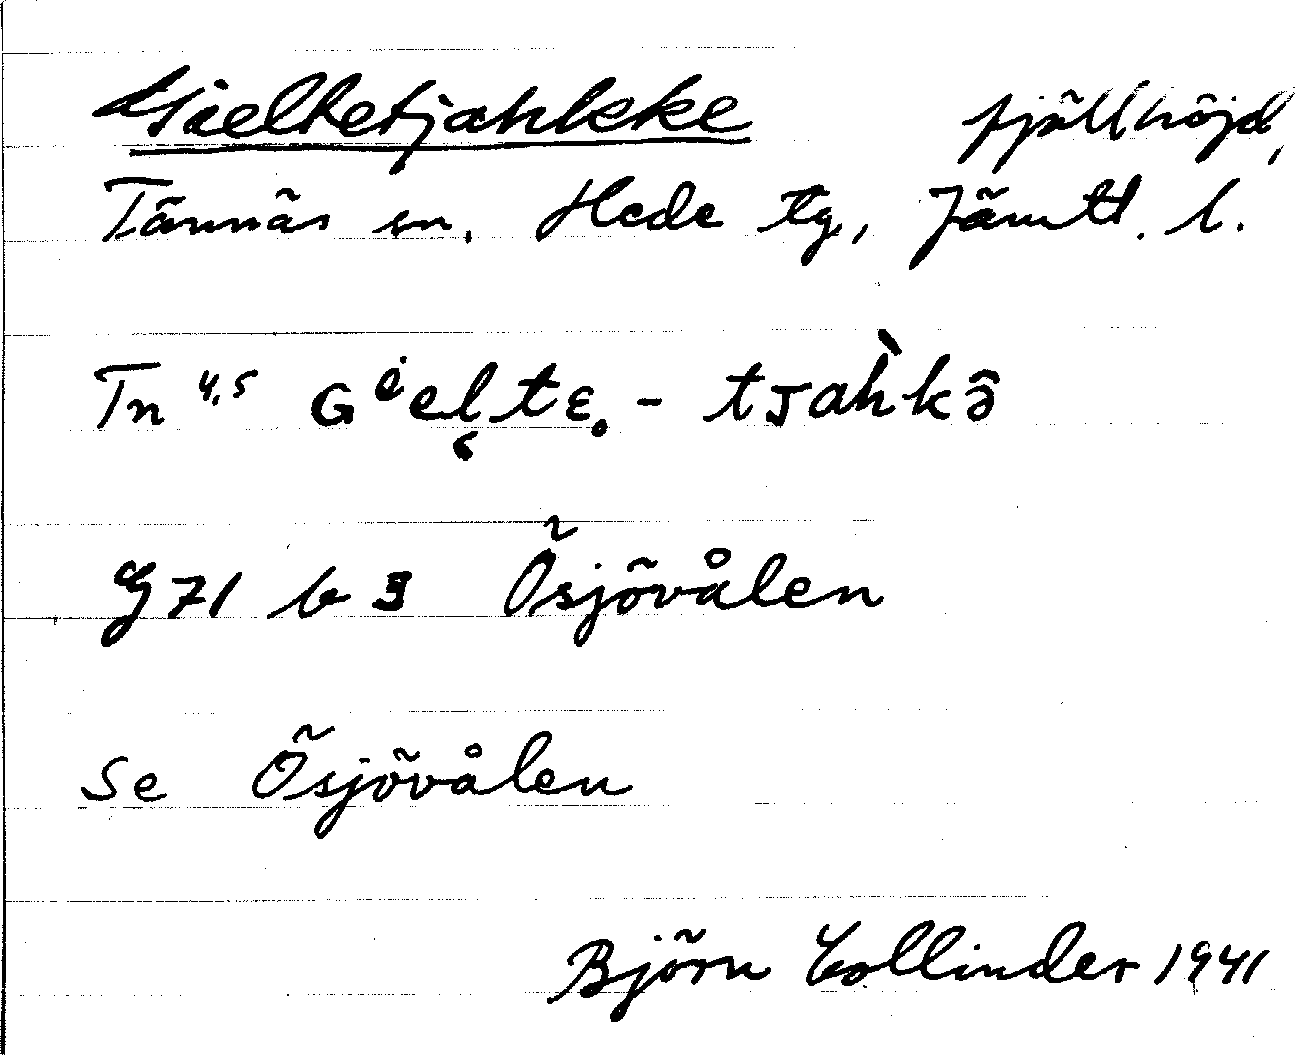 Gieltetjahkke fjällhöjd,
Tännäs sn, Hede tg, Jämtl. l.
Tn 4,5 Gⁱelt̥ɛ̣ - tjah̀kə̂
G71 b 3 Ösjövålen
Se Ösjövålen
Björn Collinder 1941